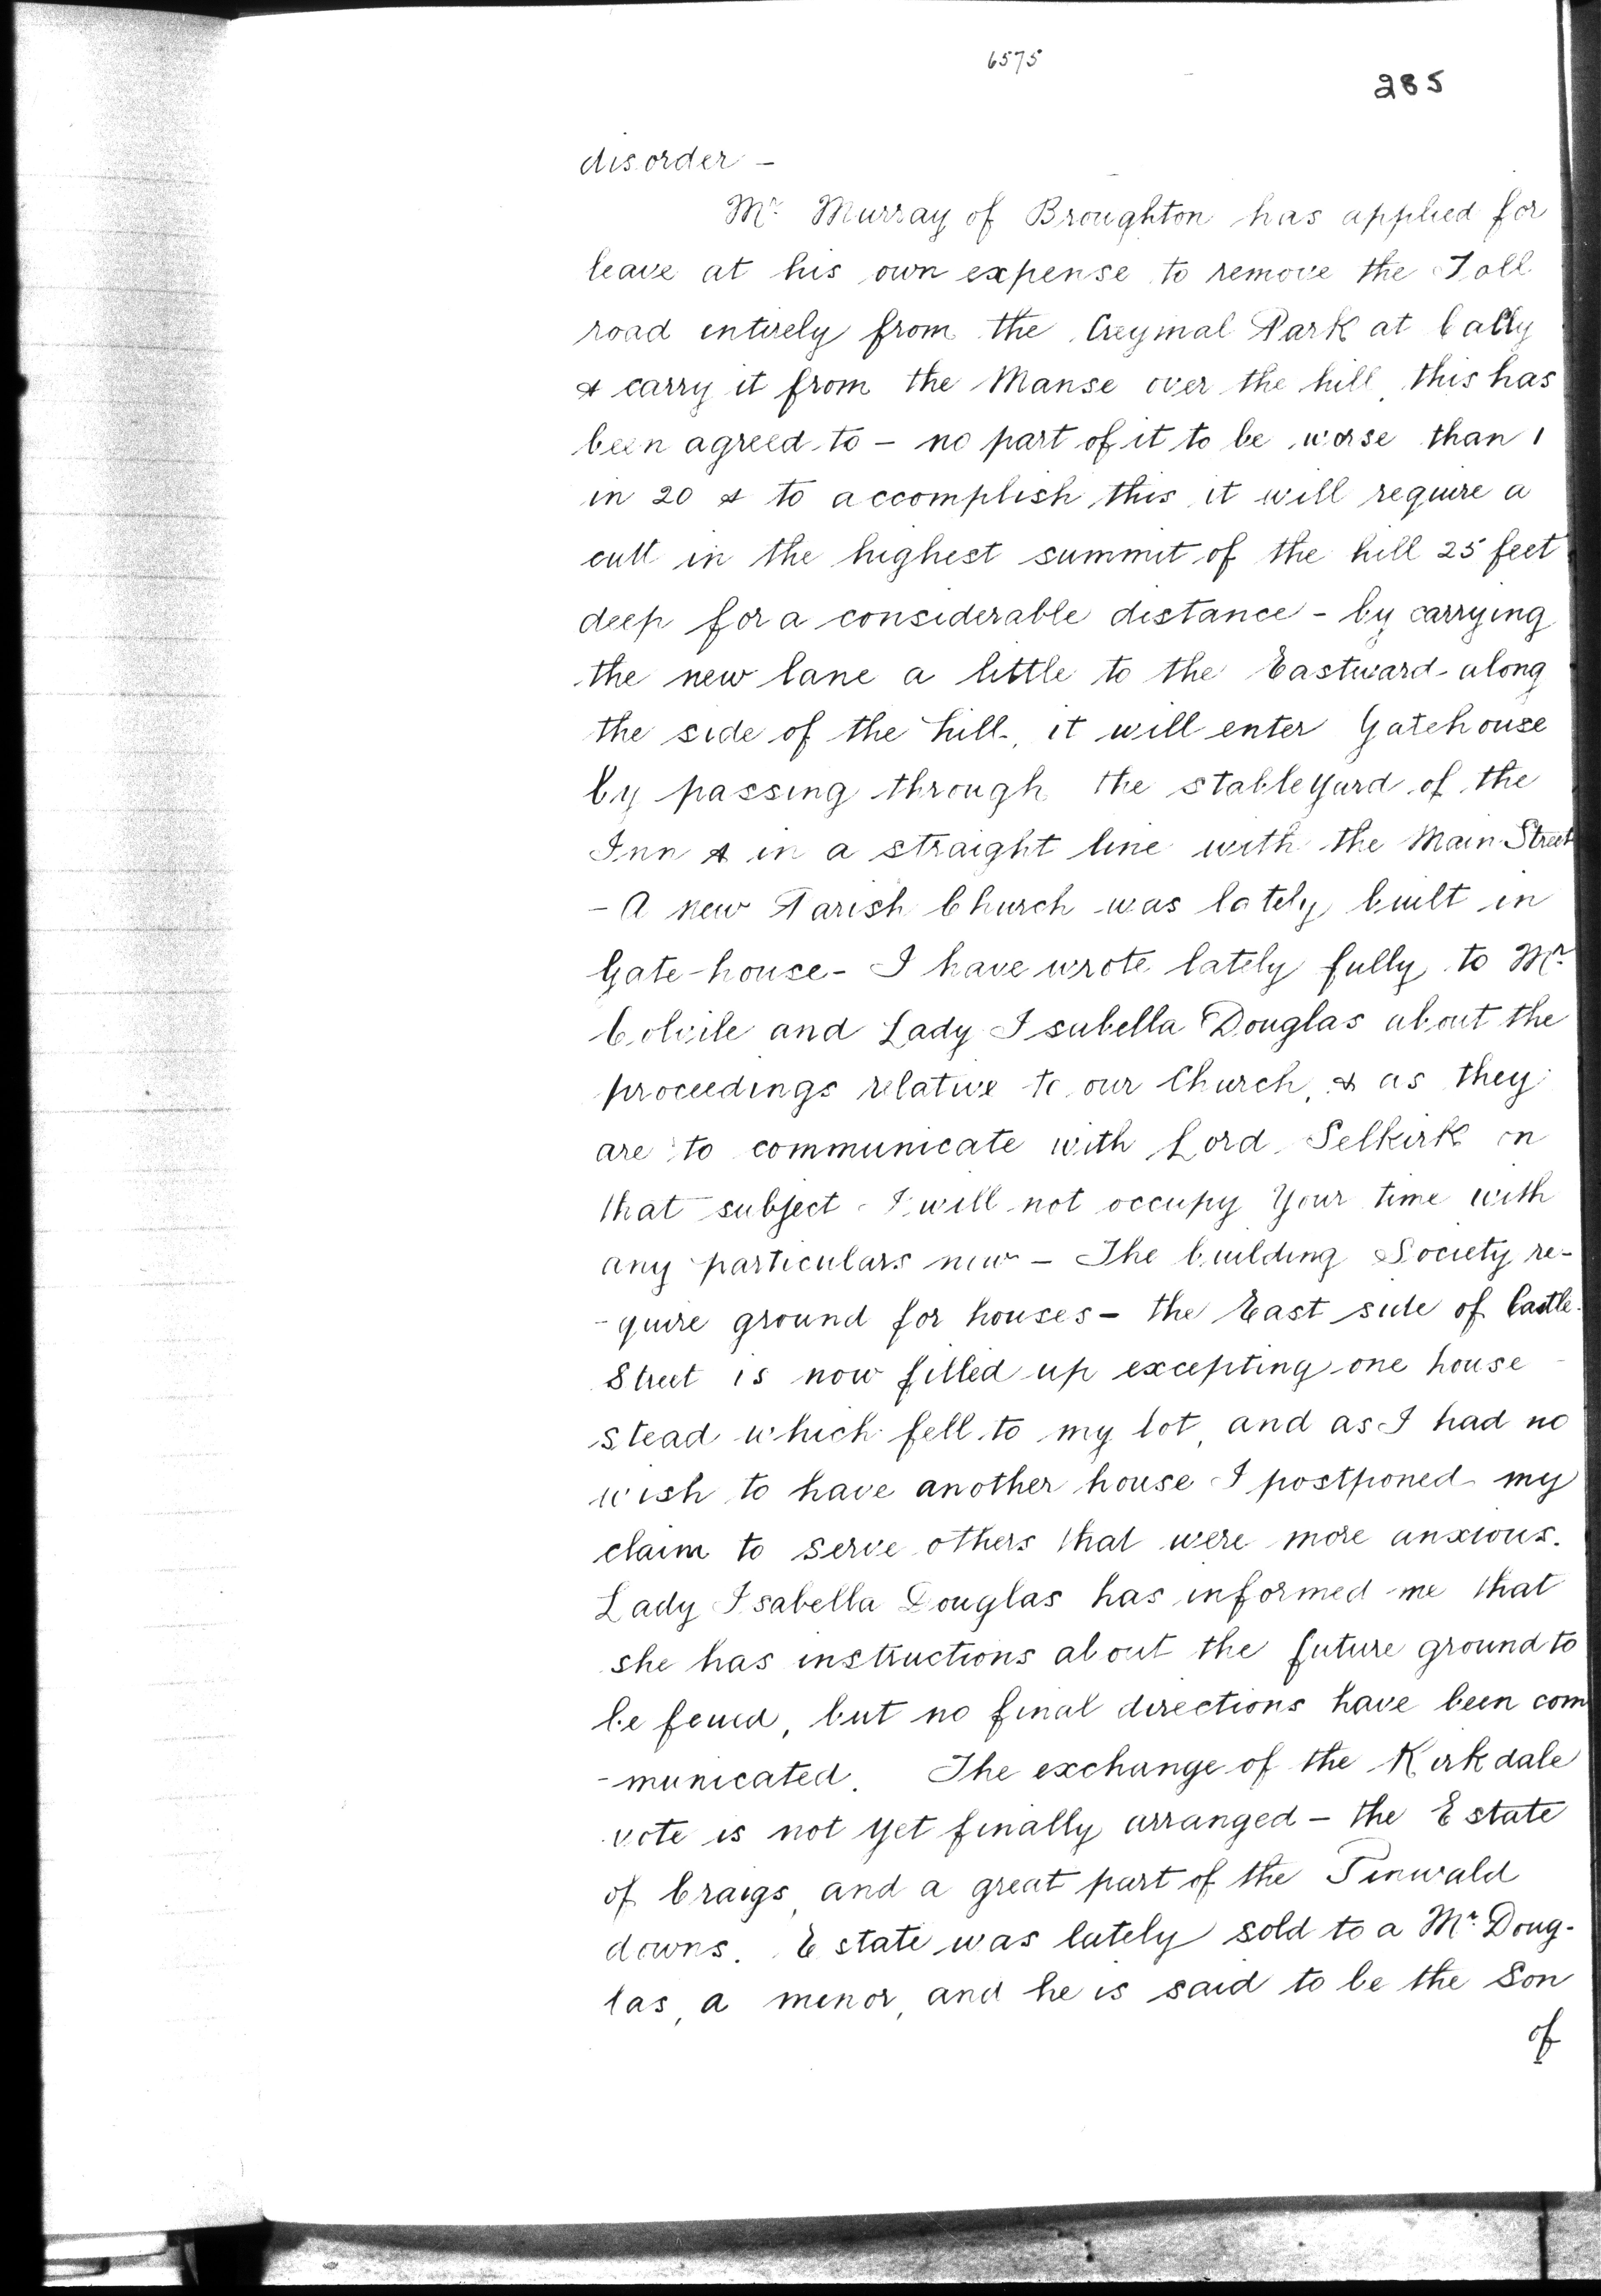 6575
285
disorder -
Mr. Murray of Broughton has applied for
leave at his own expense to remove the Toll
road entirely from the Park at Cally
& carry it from the Manse over the hill, this has
been agreed to - no part of it to be worse than 1
in 20 & to accomplish this it will require a
cutt in the highest summit of the hill 25 feet
deep for a considerable distance - by carrying
the new lane a little to the Eastward along
the side of the hill, it will enter Gatehouse
by passing through the stable yard of the
Inn & in a straight line with the Main Street
- A new Parish Church was lately built in
Gate-house - I have wrote lately fully to Mr.
Colvile and Lady Isabella Douglas about the
proceedings relative to our Church, & as they
are to communicate with Lord Selkirk on
that subject - I will not occupy your time with
any particulars now - The building Society re-
-quire ground for houses - the East side of Castle-
Street is now filled up excepting one house -
stead which fell to my lot, and as I had no
wish to have another house I postponed my
claim to serve others that were more anxious.
Lady Isabella Douglas has informed me that
she has instructions about the future ground to
be feued, but no final directions have been com
-municated. The exchange of the Kirkdale
vote is not yet finally arranged - the Estate
of Craigs, and a great part of the Tinwald
downs. Estate was lately sold to a Mr. Doug-
las, a minor, and he is said to be the Son
of